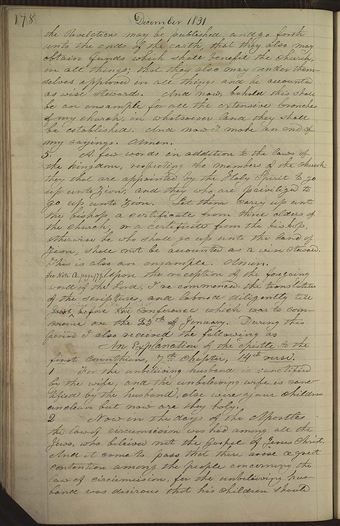 178
December 1831
the Revelations may be published, and go forth
unto the ends of the earth, that they also may
obtain funds which shall benefit the church,
in all things; that they also may render them-
selves approved in all things and be accounted
as wise stewards. And now, behold this shall
be an ensample for all the extensive branches
of my church, in whatsoever land they shall
be established. And now I make an end of
my sayings. Amen.
5. A few words in addition to the laws of
the kingdom, respecting the members of the church
they that are appointed by the Holy Spirit to go
up unto Zion; and they who are privileged to
go up unto Zion. Let them carry up unto
the bishop, a certificate from three elders of
the church, or a certificate from the bishop,
otherwise he who shall go up unto the land of
Zion, shall not be accounted as a wise steward.
This is also an ensample. Amen.
Upon the reception of the foregoing
word of the Lord, I recommenced the translation
of the scriptures, and labored diligently till
just before the conference which was to com-
mence on the 25th of January. During this
period I also received the following as
An Explanation of the epistle to the
first Corinthians, 7th Chapter, 14th verse.
1 For the unbelieving husband is sanctified
by the wife, and the unbelieving wife is sanc-
tified by the husband, else were your children
unclean but now are they holy.
2 Now in the days of the Apostles
the law of circumcision was had among all the
Jews, who believed not the Gospel of Jesus Christ.
And it came to pass that there arose a great
contention among the people concerning the
law of circumcision, for the unbelieving hus-
band was desirous that his children should